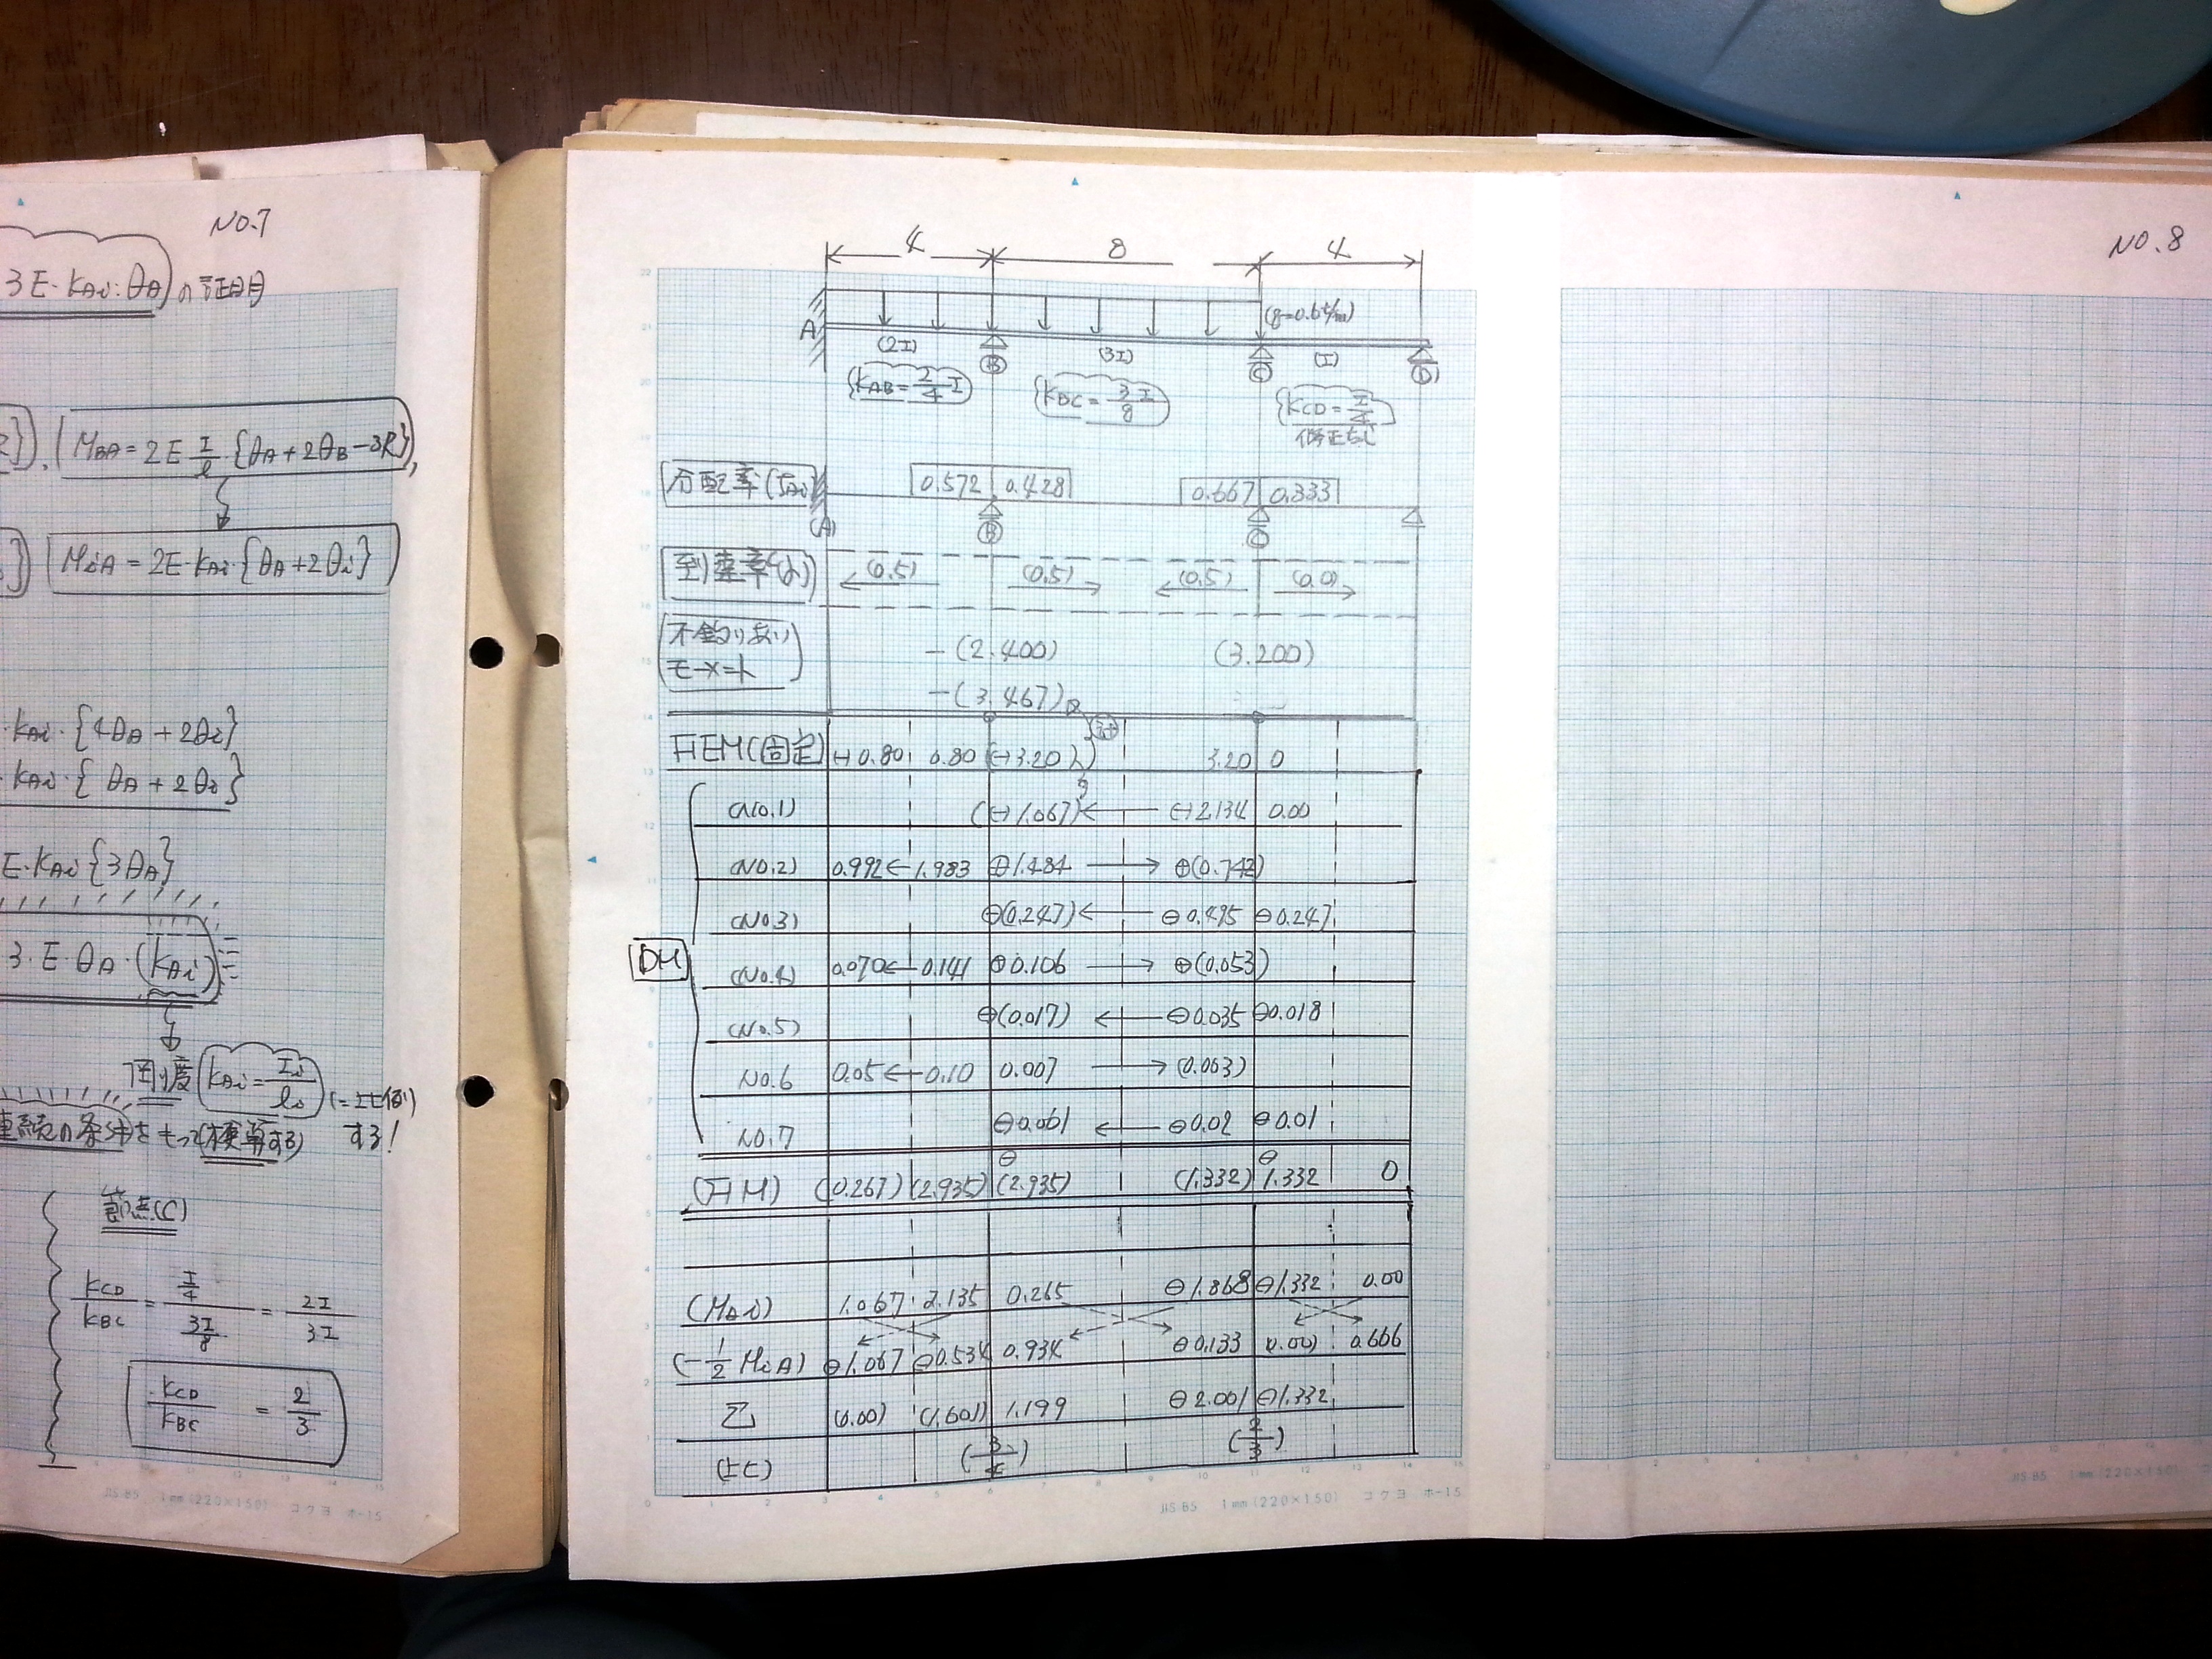 NO.7
3E·KAi·θA の証明
MBA=2E I/l·{θA+2θB-3R},
MiA=2E·KAi·{θA+2θi}
·KAi·{4θA+2θi}
·KAi·{θA+2θi}
E·KAi{3θA}
3·E·θA·(KAi)
剛度(KAi=Ii/li)(=比例)
連続の条件をもって(検算する) する!
節点(C)
KCD/KBC = (I/4)/(3I/8) = 2I/3I
KCD/KBC = 2/3
NO.8
4 8 4
A (q=0.6t/m)
(2I) B (3I) C (I) D
KAB=2/4 I KBC=3I/8 KCD=I/4
修正なし
分配率(fAi) 0.572 0.428 0.667 0.333
(A) B C
到達率(λ) (0.5) (0.5) (0.5) (0.0)
不釣りあい -(2.400) (3.200)
モーメント
-(3.467)
FEM(固定) (-)0.80 0.80 (-)3.20 3.20 0
(No.1) (-)1.067 ← (-)2.134 0.00
(No.2) 0.992 ← 1.983 ⊕1.484 → ⊕(0.742)
(No.3) ⊖(0.247) ← ⊖0.495 ⊖0.247
DM
(No.4) 0.070 ← 0.141 ⊕0.106 → ⊕(0.053)
(No.5) ⊖(0.017) ← ⊖0.035 ⊖0.018
No.6 0.05 ← 0.10 0.007 → (0.003)
No.7 ⊖0.001 ← ⊖0.02 ⊖0.01
⊖ ⊖
(FM) (0.267) (2.935) (2.935) (1.332) 1.332 0
(MAi) 1.067 2.135 0.265 ⊖1.868 ⊖1.332 0.00
(-1/2 MiA) ⊖1.067 ⊖0.534 0.934 ⊖0.133 (0.00) 0.666
Σ (0.00) (1.601) 1.199 ⊖2.001 ⊖1.332
(比) (3/4) (2/3)
JIS B5 1mm(220×150) コクヨ ホ-15
JIS B5 1mm(220×150) コクヨ ホ-15